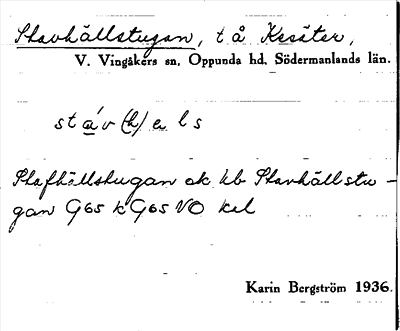 Stavhällstugan, t å Kesäter,
V. Vingåkers sn, Oppunda hd, Södermanlands län.
st a´v (h) e l s
Stafhällstugan ek kb Stavhällstu-
gan G65 k G65 VO kal
Karin Bergström 1936.